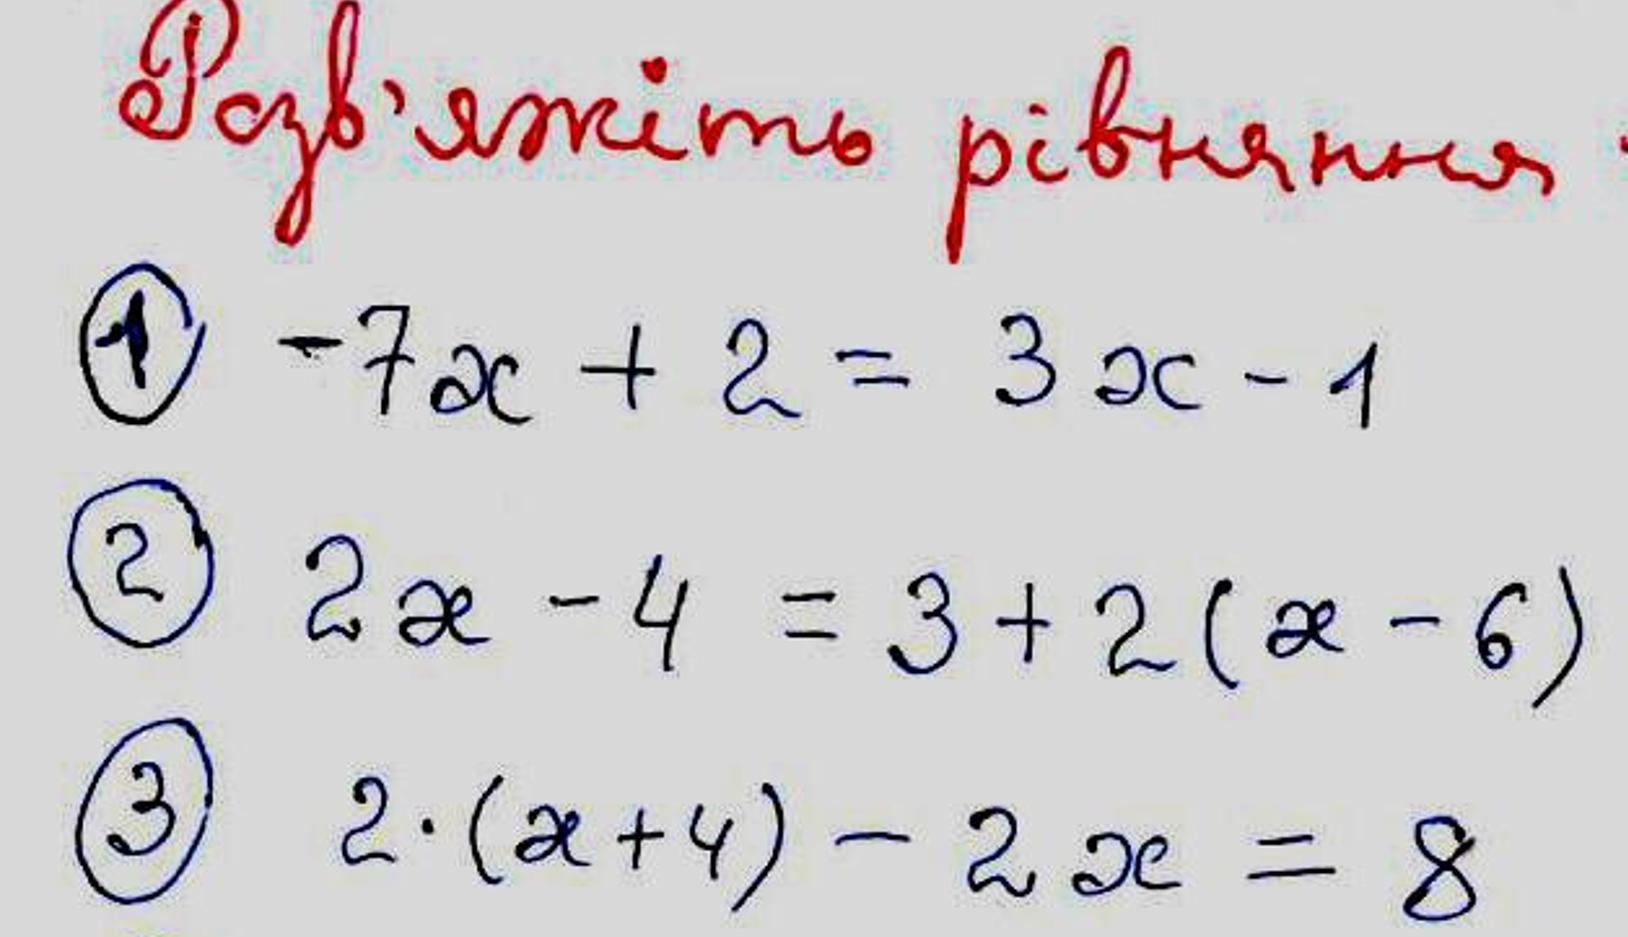 Розв'яжіть рівняння
1 -7x + 2 = 3x - 1
2 2x - 4 = 3 + 2(x - 6)
3 2·(x+4) - 2x = 8